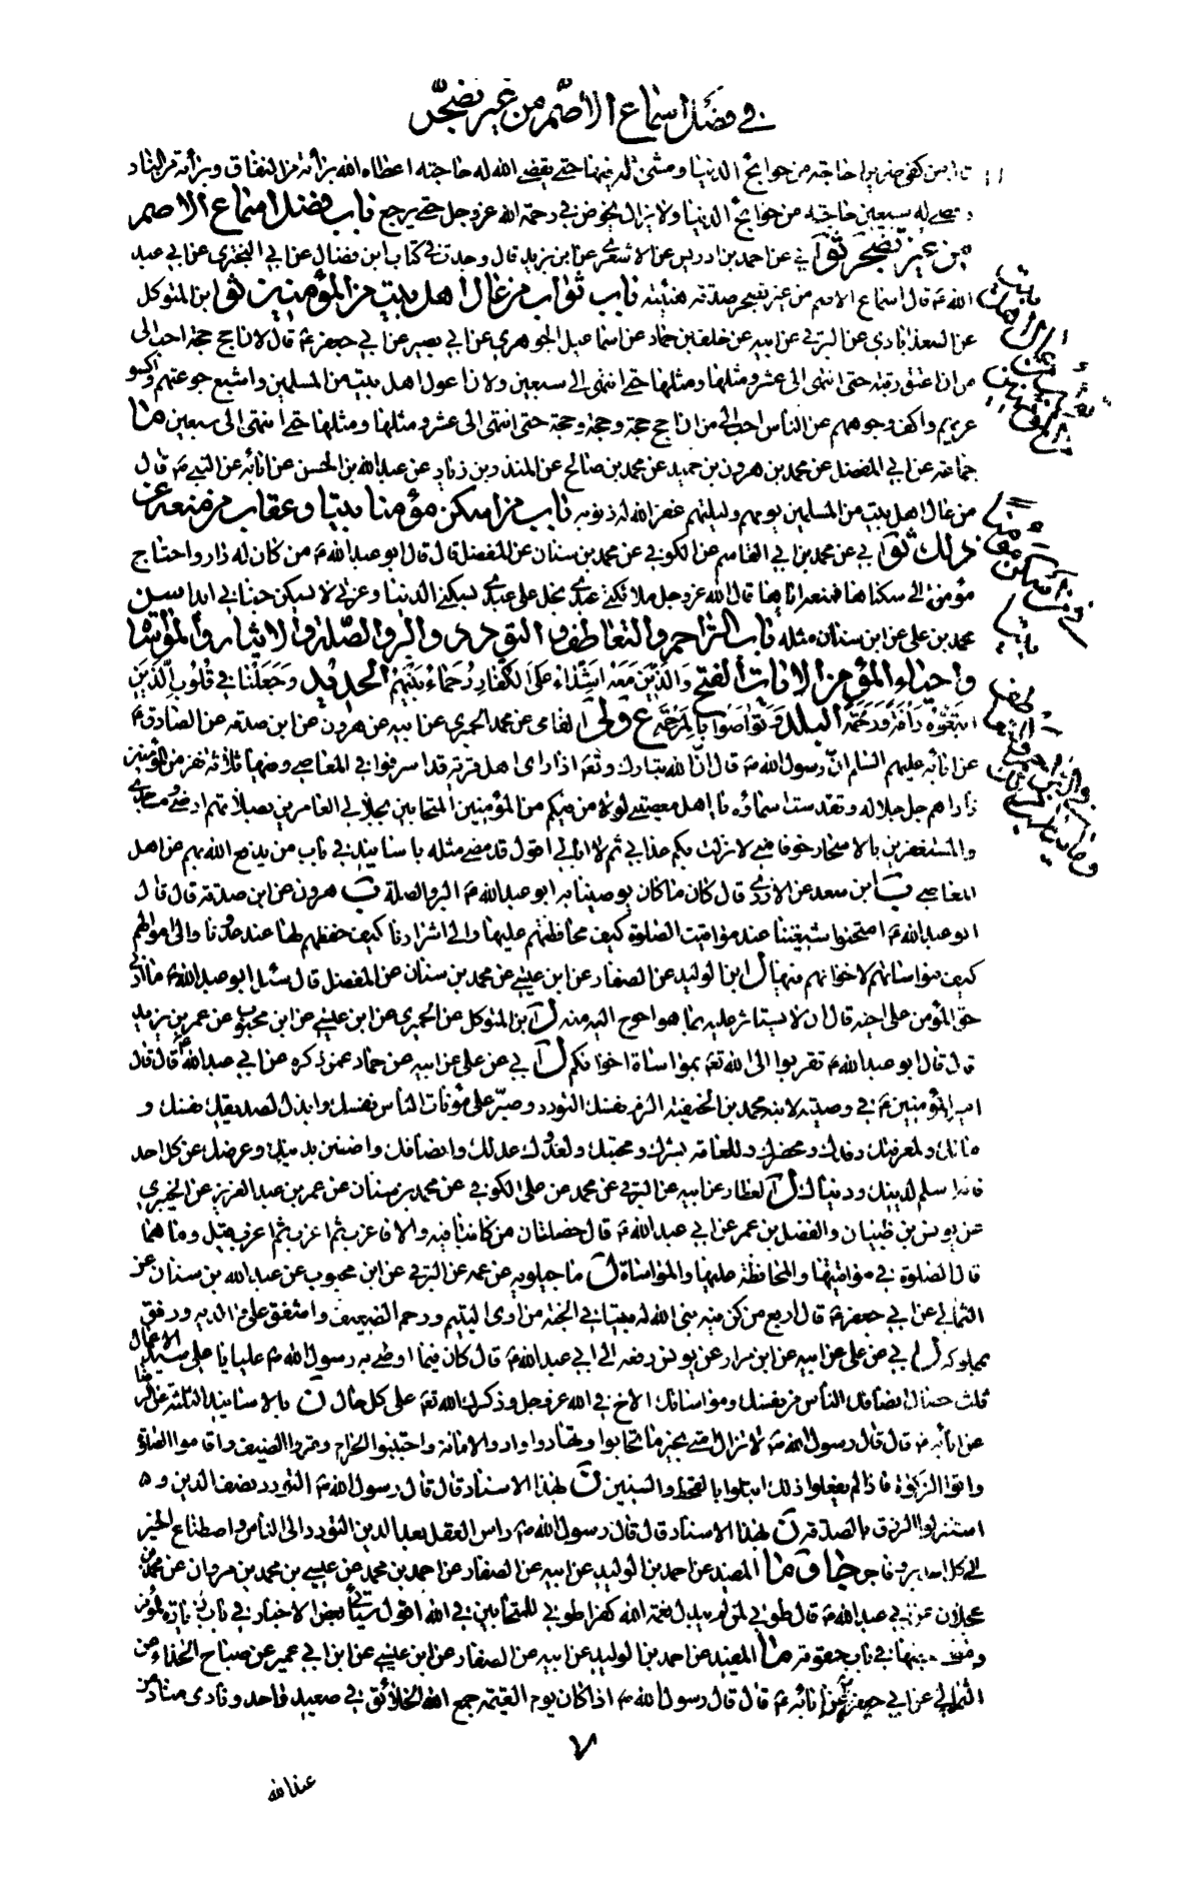 في فضل اسماع الاصم من غير تضجر
من كفى ضريرا حاجة من حوائج الدنيا ومشى له فيها حتى يقضي الله له حاجته اعطاه الله براءة من النفاق وبراءة من النار
وقضى له سبعين حاجة من حوائج الدنيا ولا يزال يخوض في رحمة الله عز وجل حتى يرجع باب فضل اسماع الاصم
من غير تضجر ثو ابي عن احمد بن ادريس عن الاشعري عن ابن يزيد قال وجدت في كتاب ابن فضال عن ابي البختري عن ابي عبد
الله ع قال اسماع الاصم من غير تضجر صدقة هنيئة باب ثواب من عال اهل بيت من المؤمنين ثو ابن المتوكل
عن السعدابادي عن البرقي عن ابيه عن خلف بن حماد عن اسماعيل الجوهري عن ابي بصير عن ابي جعفر ع قال لان احج حجة احب الى
من ان اعتق رقبة حتى انتهى الى عشر ومثلها ومثلها حتى انتهى الى سبعين ولان اعول اهل بيت من المسلمين واشبع جوعتهم واكسو
عريهم واكف وجوههم عن الناس احب الي من ان احج حجة وحجة وحجة حتى انتهى الى عشر ومثلها ومثلها حتى انتهى الى سبعين ما
جماعة عن ابي المفضل عن محمد بن هرون بن حميد عن محمد بن صالح عن المنذر بن زياد عن عبد الله بن الحسن عن ابائه عن النبي ص قال
من عال اهل بيت من المسلمين يومهم وليلتهم غفر الله له ذنوبه باب من اسكن مؤمنا بيتا وعقاب من منعه عن
ذلك ثو ابي عن محمد بن ابي القاسم عن الكوفي عن محمد بن سنان عن المفضل قال قال ابو عبد الله ع من كان له دار واحتاج
مؤمن الى سكناها فمنعه اياها قال الله عز وجل ملائكتي عبدي بخل على عبدي بسكنى الدنيا وعزتي لا يسكن جناني ابدا سن
محمد بن علي عن ابن سنان مثله باب التراحم والتعاطف والتودد والبر والصلة والايثار والمؤاساة
واحياء المؤمن الايات الفتح والذين معه اشداء على الكفار رحماء بينهم الحديد وجعلنا في قلوب الذين
اتبعوه رأفة ورحمة البلد وتواصوا بالمرحمة ع الفامي عن محمد الحميري عن ابيه عن هرون عن ابن صدقة عن الصادق ع
عن ابائه عليهم السلم ان رسول الله ص قال ان الله تبارك وتعه اذا راى اهل قرية قد اسرفوا في المعاصي وفيها ثلاثة نفر من المؤمنين
ناداهم جل جلاله وتقدست اسماؤه يا اهل معصيتي لولا من فيكم من المؤمنين المتحابين بجلالي العامرين بصلاتهم ارضي ومساجدي
والمستغفرين بالاسحار خوفا مني لانزلت بكم عذابي ثم لا ابالي اقول قد مضى مثله باسانيد في باب من يدفع الله بهم عن اهل
المعاصي ب ابن سعد عن الازدي قال كان مما كان يوصينا به ابو عبد الله ع البر والصلة ب هرون عن ابن صدقة قال قال
ابو عبد الله ع امتحنوا شيعتنا عند مواقيت الصلوة كيف محافظتهم عليها والى اسرارنا كيف حفظهم لها عند عدونا والى اموالهم
كيف مواساتهم لاخوانهم فيها ل ابن الوليد عن الصفار عن ابن عيسى عن محمد بن سنان عن المفضل قال سئل ابو عبد الله ع ما ادنى
حق المؤمن على اخيه قال ان لا يستاثر عليه بما هو احوج اليه منه ل ابن المتوكل عن الحميري عن ابن عيسى عن ابن محبوب عن عمر بن يزيد
قال قال ابو عبد الله ع تقربوا الى الله تعه بمواساة اخوانكم ل ابي عن علي عن ابيه عن حماد عمن ذكره عن ابي عبد الله ع قال قال
امير المؤمنين ع في وصيته لابنه محمد بن الحنفية الزم نفسك التودد وصبر على مؤنات الناس نفسك وابذل لصديقك نفسك و
مالك ولمعرفتك رفدك ومحضرك وللعامة بشرك ومحبتك ولعدوك عدلك وانصافك واضنن بدينك وعرضك عن كل احد
فانه اسلم لدينك ودنياك ل العطار عن ابيه عن البرقي عن محمد بن علي الكوفي عن محمد بن سنان عن عمر بن عبد العزيز عن الخيبري
عن يونس بن ظبيان والمفضل بن عمر عن ابي عبد الله ع قال خصلتان من كانتا فيه والا فاعزب ثم اعزب ثم اعزب قيل وما هما
قال الصلوة في مواقيتها والمحافظة عليها والمواساة ل ماجيلويه عن عمه عن البرقي عن ابن محبوب عن عبد الله بن سنان عن
الثمالي عن ابي جعفر ع قال اربع من كن فيه بنى الله له بيتا في الجنة من اوى اليتيم ورحم الضعيف واشفق على والديه ورفق
بمملوكه ل ابي عن علي عن ابيه عن ابن مرار عن يونس رفعه الى ابي عبد الله ع قال كان فيما اوصى به رسول الله ص عليا يا علي سيد الاعمال
ثلث خصال انصافك الناس من نفسك ومواساتك الاخ في الله عز وجل وذكرك الله تعه على كل حال ن بالاسانيد الثلثة عن الرضا
عن ابائه ع قال قال رسول الله ص لا تزال امتي بخير ما تحابوا وتهادوا وادوا الامانة واجتنبوا الحرام وقروا الضيف واقاموا الصلوة
واتوا الزكوة فاذا لم يفعلوا ذلك ابتلوا بالقحط والسنين ن بهذا الاسناد قال قال رسول الله ص التودد نصف الدين و
استنزلوا الرزق بالصدقة ن بهذا الاسناد قال قال رسول الله ص راس العقل بعد الدين التودد الى الناس واصطناع الخير
الى كل احد بر وفاجر جا ما المفيد عن احمد بن الوليد عن ابيه عن الصفار عن احمد بن محمد بن عيسى بن محمد بن مروان عن محمد بن
عجلان عن ابي عبد الله ع قال طوبى لمن لم يبدل نعمة الله كفرا طوبى للمتحابين في الله اقول سيأتي بعض الاخبار في باب زيارة المؤمن
وبعضها في باب حقوقه ما المفيد عن احمد بن الوليد عن ابيه عن الصفار عن ابن عيسى عن ابن ابي عمير عن صباح الحذاء عن
الثمالي عن ابي جعفر عن ابائه ع قال قال رسول الله ص اذا كان يوم القيمة جمع الله الخلائق في صعيد واحد ونادى مناد من
٧
عند الله